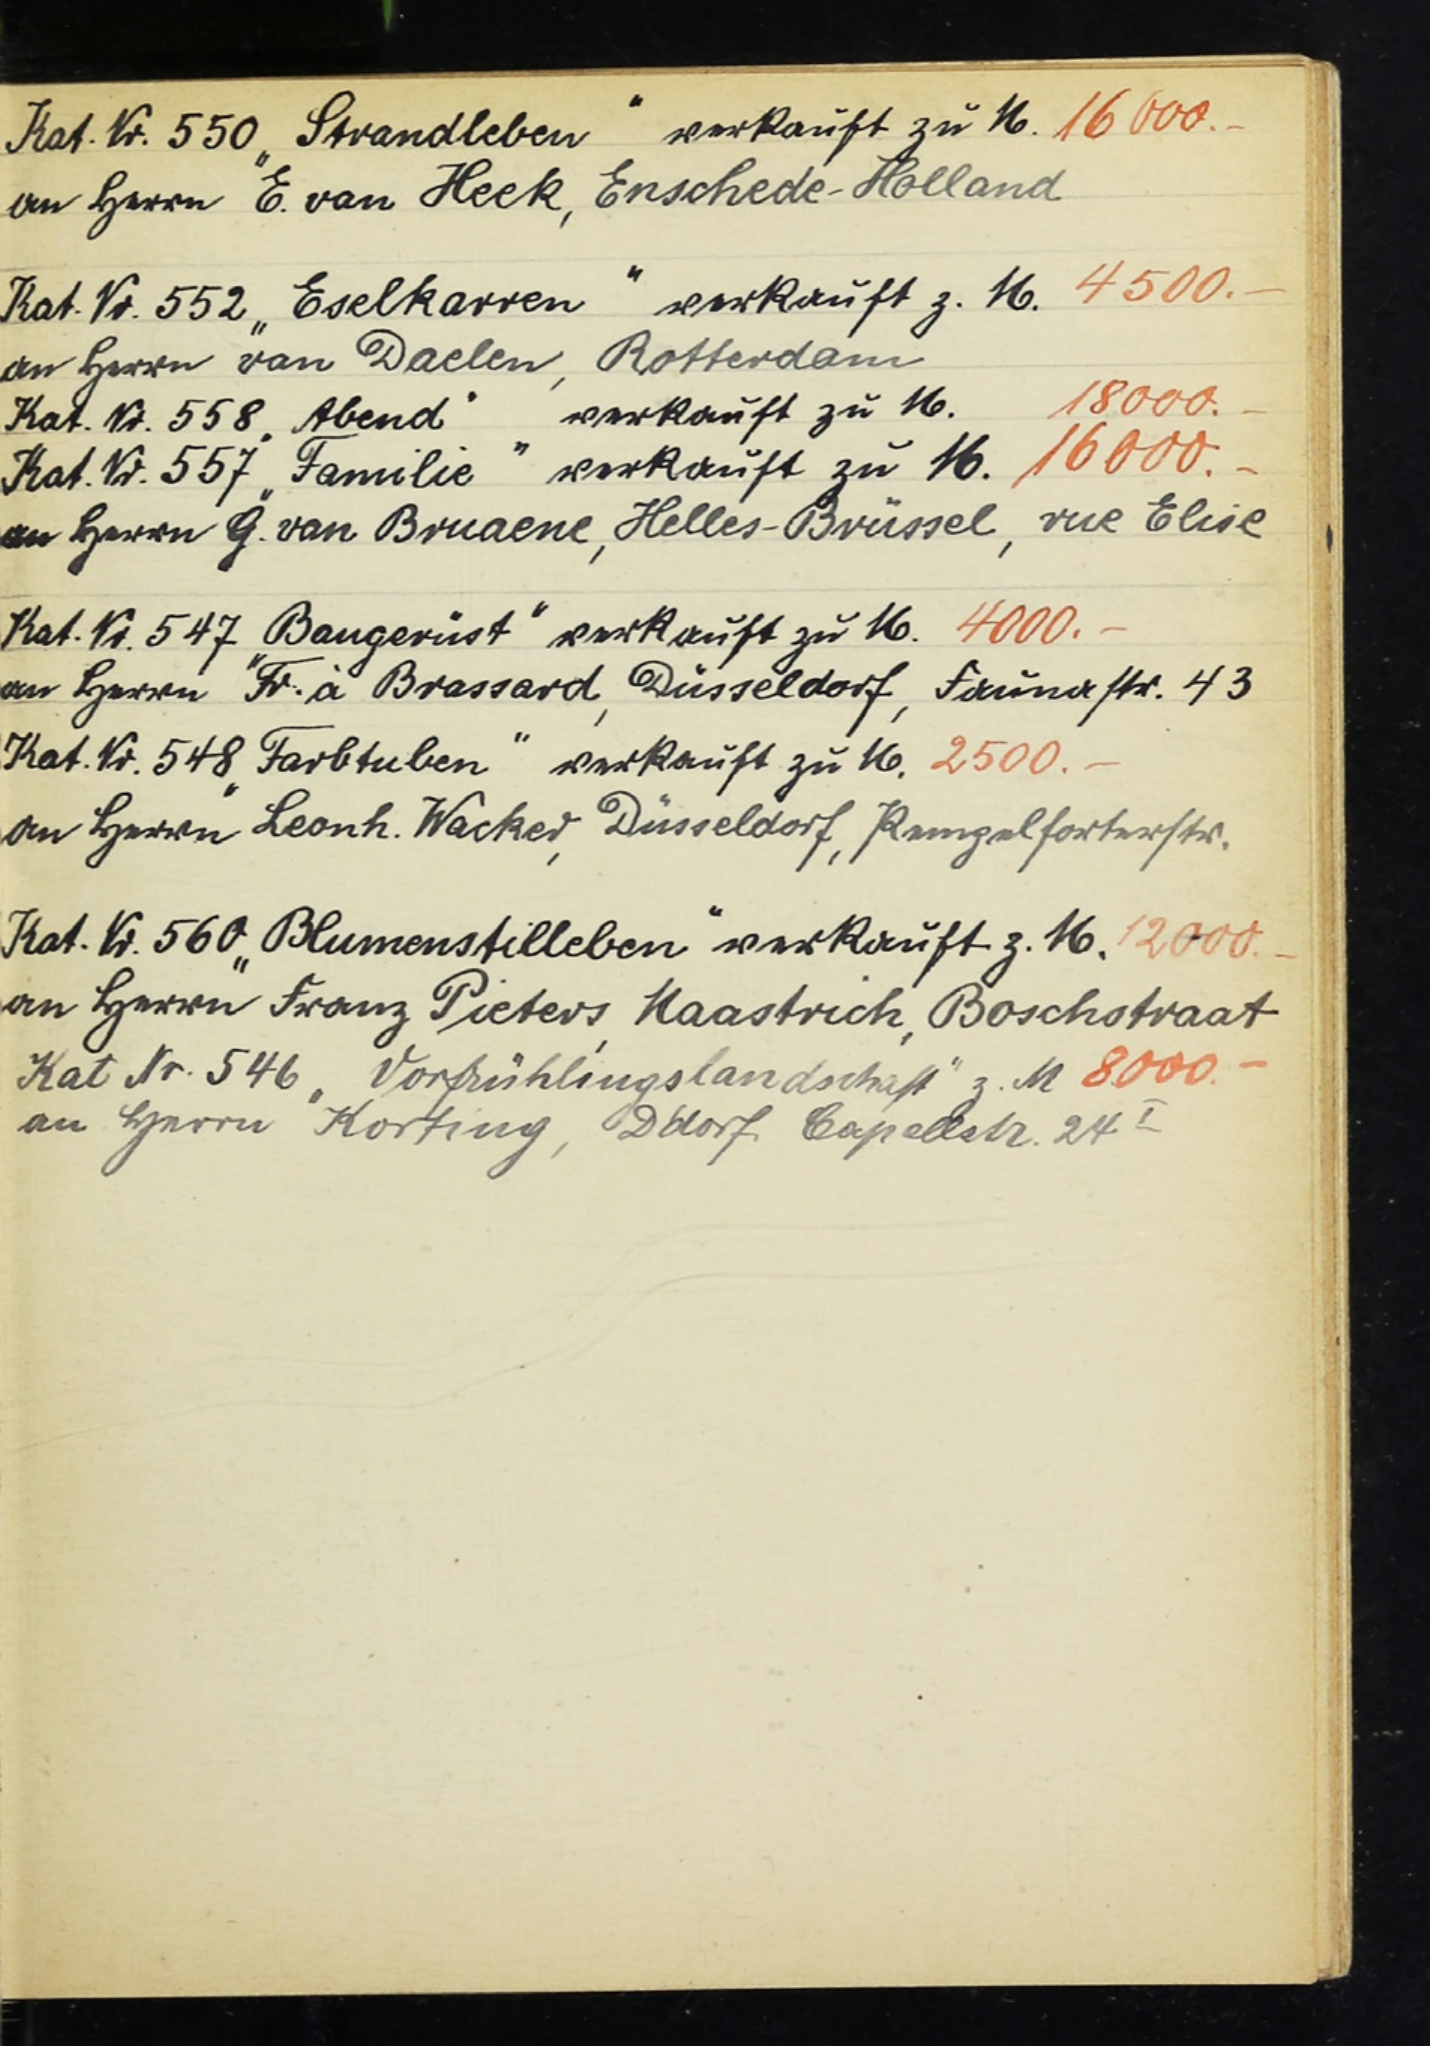 Kat. Nr. 550 „Strandleben" verkauft zu M. 16000.-
an Herrn E. van Heek, Enschede-Holland
Kat. Nr. 552 „Eselkarren" verkauft z. M. 4500.-
an Herrn van Daelen, Rotterdam
Kat. Nr. 558 „Abend" verkauft zu M. 18000.-
Kat. Nr. 557 „Familie" verkauft zu M. 16000.-
an Herrn G. van Bruaene, Helles-Brüssel, rue Elise
Kat. Nr. 547 „Baugerüst" verkauft zu M. 4000.-
an Herrn Fr. à Brassard, Düsseldorf, Faunastr. 43
Kat. Nr. 548 „Farbtuben" verkauft zu M. 2500.-
an Herrn Leonh. Wacker, Düsseldorf, Pempelforterstr.
Kat. Nr. 560 „Blumenstilleben" verkauft z. M. 12000.-
an Herrn Franz Pieters, Maastrich, Boschstraat
Kat Nr. 546 „Vorfrühlingslandschaft" z. M 8000.-
an Herrn Korting, Ddorf Capellstr. 24 I